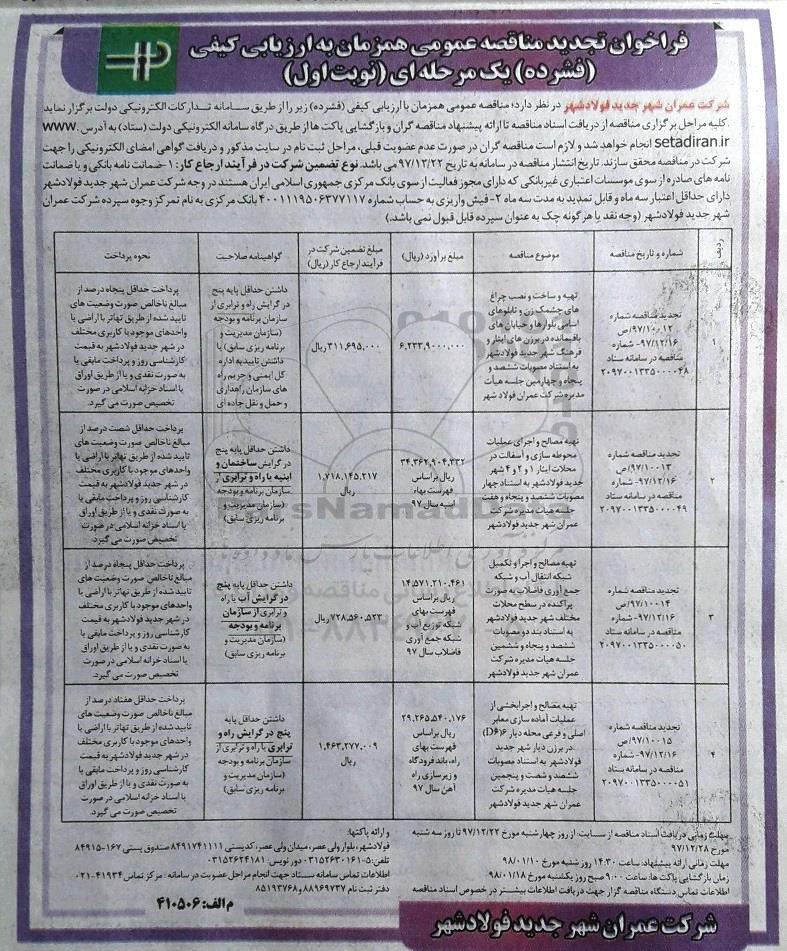 فراخوان تجدید مناقصه عمومی همزمان به ارزیابی کیفی
(فشرده) یک مرحله ای (نوبت اول)
شرکت عمران شهر جدید فولادشهر در نظر دارد؛ مناقصه عمومی همزمان با ارزیابی کیفی (فشرده) زیر را از طریق سامانه تدارکات الکترونیکی دولت برگزار نماید
.کلیه مراحل برگزاری مناقصه از دریافت اسناد مناقصه تا ارائه پیشنهاد مناقصه گران و بازگشایی پاکت ها از طریق درگاه سامانه الکترونیکی دولت (ستاد) به آدرس www.
setadiran.ir انجام خواهد شد و لازم است مناقصه گران در صورت عدم عضویت قبلی، مراحل ثبت نام در سایت مذکور و دریافت گواهی امضای الکترونیکی را جهت
شرکت در مناقصه محقق سازند. تاریخ انتشار مناقصه در سامانه به تاریخ ۹۷/۱۲/۲۲ می باشد. نوع تضمین شرکت در فرآیند ارجاع کار: ۱- ضمانت نامه بانکی و یا ضمانت
نامه های صادره از سوی موسسات اعتباری غیربانکی که دارای مجوز فعالیت از سوی بانک مرکزی جمهوری اسلامی ایران هستند در وجه شرکت عمران شهر جدید فولادشهر
دارای حداقل اعتبار سه ماه و قابل تمدید به مدت سه ماه ۲- فیش واریزی به حساب شماره ۴۰۰۱۱۱۹۵۰۶۳۷۷۱۱۷ بانک مرکزی به نام تمرکز وجوه سپرده شرکت عمران
شهر جدید فولادشهر (وجه نقد یا هر گونه چک به عنوان سپرده قابل قبول نمی باشد.)
ردیف
شماره و تاریخ مناقصه
موضوع مناقصه
مبلغ برآورد (ریال)
مبلغ تضمین شرکت در
فرآیند ارجاع کار (ریال)
گواهینامه صلاحیت
نحوه پرداخت
۱
تجدید مناقصه شماره
۹۷/۱۰۰۱۲/ص
۹۷/۱۲/۱۶- شماره
مناقصه در سامانه ستاد
۲۰۹۷۰۰۱۳۳۵۰۰۰۰۴۸
تهیه و ساخت و نصب چراغ
های چشمک زن و تابلوهای
اسامی بلوارها و خیابان های
باقیمانده در برزن های ایثار و
فرهنگ شهر جدید فولادشهر
به استناد مصوبات ششصد و
پنجاه و چهارمین جلسه هیأت
مدیره شرکت عمران فولاد شهر
۶.۲۳۳.۹۰۰.۰۰۰
۳۱۱.۶۹۵.۰۰۰ ریال
داشتن حداقل پایه پنج
در گرایش راه و ترابری از
سازمان برنامه و بودجه
(سازمان مدیریت و
برنامه ریزی سابق) یا
داشتن تاییدیه اداره
کل ایمنی و حریم راه
های سازمان راهداری
و حمل و نقل جاده ای
پرداخت حداقل پنجاه درصد از
مبالغ ناخالص صورت وضعیت های
تایید شده از طریق تهاتر با اراضی یا
واحدهای موجود با کاربری مختلف
در شهر جدید فولادشهر به قیمت
کارشناسی روز و پرداخت مابقی یا
به صورت نقدی و یا از طریق اوراق
یا اسناد خزانه اسلامی در صورت
تخصیص صورت می گیرد.
۲
تجدید مناقصه شماره
۹۷/۱۰۰۱۳/ص
۹۷/۱۲/۱۶- شماره
مناقصه در سامانه ستاد
۲۰۹۷۰۰۱۳۳۵۰۰۰۰۴۹
تهیه مصالح و اجرای عملیات
محوطه سازی و آسفالت در
محلات ایثار ۱ و ۲ و ۴ شهر
جدید فولادشهر به استناد چهار
مصوبات ششصد و پنجاه و هفت
جلسه هیات مدیره شرکت
عمران شهر جدید فولادشهر
۳۴.۳۶۲.۹۰۴.۳۳۲
ریال براساس
فهرست بهاء
ابنیه سال ۹۷
۱,۷۱۸,۱۴۵,۲۱۷
ریال
داشتن حداقل پایه پنج
در گرایش ساختمان و
ابنیه یا راه و ترابری از
سازمان برنامه و بودجه
(سازمان مدیریت و
برنامه ریزی سابق)
پرداخت حداقل شصت درصد از
مبالغ ناخالص صورت وضعیت های
تایید شده از طریق تهاتر با اراضی یا
واحدهای موجود با کاربری مختلف
در شهر جدید فولادشهر به قیمت
کارشناسی روز و پرداخت مابقی یا
به صورت نقدی و یا از طریق اوراق
یا اسناد خزانه اسلامی در صورت
تخصیص صورت می گیرد.
۳
تجدید مناقصه شماره
۹۷/۱۰۰۱۴/ص
۹۷/۱۲/۱۶- شماره
مناقصه در سامانه ستاد
۲۰۹۷۰۰۱۳۳۵۰۰۰۰۵۰
تهیه مصالح و اجرا و تکمیل
شبکه انتقال آب و شبکه
جمع آوری فاضلاب به صورت
پراکنده در سطح محلات
مختلف شهر جدید فولادشهر
به استناد بند دو مصوبات
ششصد و پنجاه و ششمین
جلسه هیات مدیره شرکت
عمران شهر جدید فولادشهر
۱۴.۵۷۱.۲۱۰.۴۶۱
ریال براساس
فهرست بهای
شبکه توزیع آب و
شبکه جمع آوری
فاضلاب سال ۹۷
۷۲۸.۵۶۰.۵۲۳ ریال
داشتن حداقل پایه پنج
در گرایش آب یا راه
و ترابری از سازمان
برنامه و بودجه
(سازمان مدیریت و
برنامه ریزی سابق)
پرداخت حداقل پنجاه درصد از
مبالغ ناخالص صورت وضعیت های
تایید شده از طریق تهاتر با اراضی یا
واحدهای موجود با کاربری مختلف
در شهر جدید فولادشهر به قیمت
کارشناسی روز و پرداخت مابقی یا
به صورت نقدی و یا از طریق اوراق
یا اسناد خزانه اسلامی در صورت
تخصیص صورت می گیرد.
۴
تجدید مناقصه شماره
۹۷/۱۰۰۱۵/ص
۹۷/۱۲/۱۶- شماره
مناقصه در سامانه ستاد
۲۰۹۷۰۰۱۳۳۵۰۰۰۰۵۱
تهیه مصالح و اجرا بخشی از
عملیات آماده سازی معابر
اصلی و فرعی محله دیار ۶(D6)
در برزن دیار شهر جدید
فولادشهر به استناد مصوبات
ششصد و شصت و پنجمین
جلسه هیات مدیره شرکت
عمران شهر جدید فولادشهر
۲۹.۲۶۵.۵۴۰.۱۷۶
ریال براساس
فهرست بهای
راه، باند فرودگاه
و زیرسازی راه
آهن سال ۹۷
۱,۴۶۳,۲۷۷,۰۰۹
ریال
داشتن حداقل پایه
پنج در گرایش راه و
ترابری یا راه و ترابری از
سازمان برنامه و بودجه
(سازمان مدیریت و
برنامه ریزی سابق)
پرداخت حداقل هفتاد درصد از
مبالغ ناخالص صورت وضعیت های
تایید شده از طریق تهاتر با اراضی یا
واحدهای موجود با کاربری مختلف
در شهر جدید فولادشهر به قیمت
کارشناسی روز و پرداخت مابقی یا
به صورت نقدی و یا از طریق اوراق
یا اسناد خزانه اسلامی در صورت
تخصیص صورت می گیرد.
مهلت زمانی دریافت اسناد مناقصه از سایت: از روز چهارشنبه مورخ ۹۷/۱۲/۲۲ تا روز سه شنبه
مورخ ۹۷/۱۲/۲۸
مهلت زمانی ارائه پیشنهاد: ساعت ۱۴:۳۰ روز شنبه مورخ ۹۸/۰۱/۱۰
زمان بازگشایی پاکت ها: ساعت ۹:۰۰ صبح روز یکشنبه مورخ ۹۸/۰۱/۱۸
اطلاعات تماس دستگاه مناقصه گزار جهت دریافت اطلاعات بیشتر در خصوص اسناد مناقصه
و ارائه پاکتها:
فولادشهر، بلوار ولی عصر، میدان ولی عصر، کدپستی ۸۴۹۱۷۴۱۱۱۱ صندوق پستی ۱۶۷-۸۴۹۱۵
تلفن: ۵-۰۳۱۵۲۶۳۰۱۶۱ دورنویس: ۰۳۱۵۲۶۲۴۱۸۱
اطلاعات تماس سامانه ستاد جهت انجام مراحل عضویت در سامانه : مرکز تماس ۴۱۹۳۴-۰۲۱
دفتر ثبت نام ۸۸۹۶۹۷۳۷ و ۸۵۱۹۳۷۶۸
م الف: ۴۱۰۵۰۶
شرکت عمران شهر جدید فولادشهر